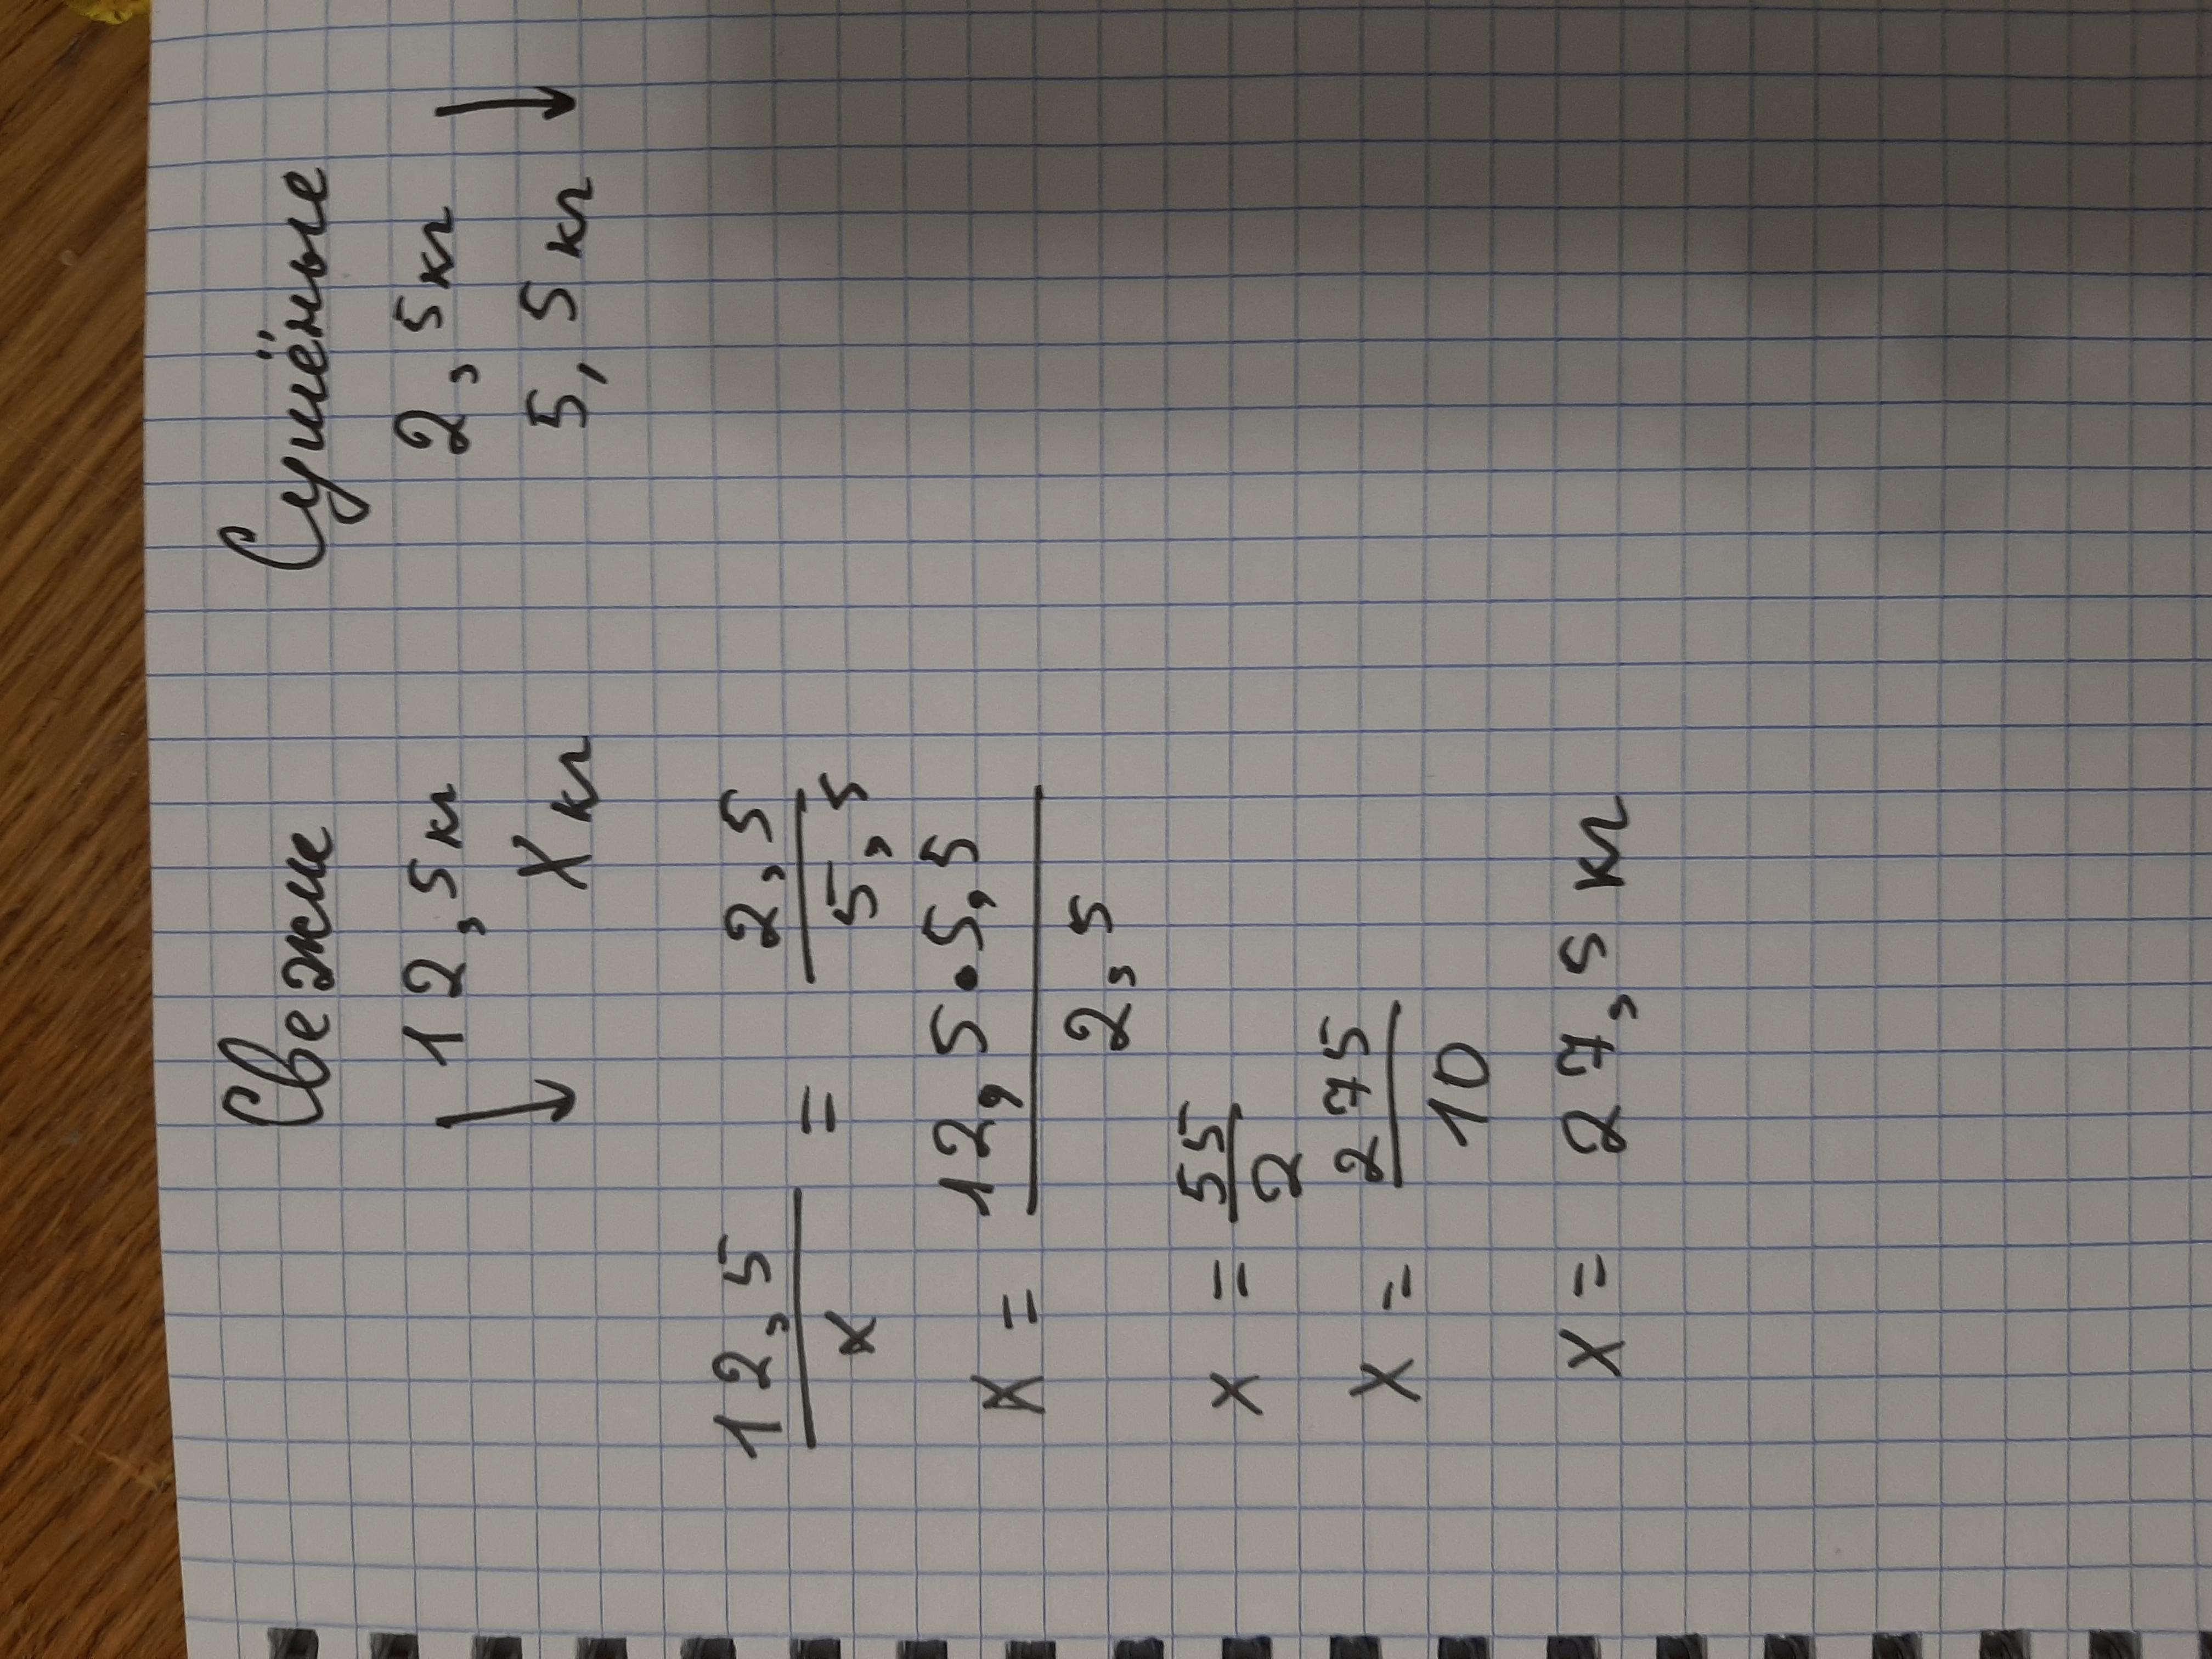 Свежие Сушёные
↓ 12,5 кг 2,5 кг ↓
X кг 5,5 кг
12,5/x = 2,5/5,5
x = 12,5·5,5/2,5
x = 55/2
x = 275/10
x = 27,5 кг